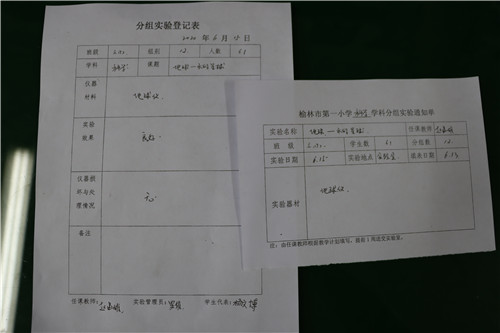 分组实验登记表
2020 年 6 月 15 日
班级 组别 12 人数 61
学科 科学 课题 地球—水的星球
仪器材料 地球仪.
实验效果 良好.
仪器损坏与处理情况 无.
备注
任课教师: 实验管理员: 学生代表:
榆林市第一小学 科学 学科分组实验通知单
实验名称 地球—水的星球 任课教师
班 级 学生数 61 分组数 12
实验日期 6.15 实验地点 实验室 填表日期
实验器材 地球仪.
注:由任课教师根据教学计划填写,提前1周送交实验室。